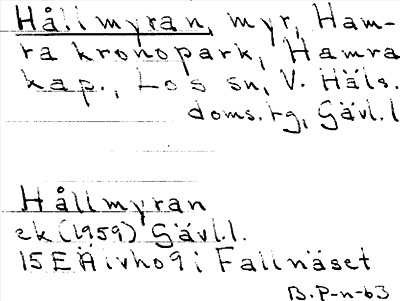 Hållmyran, myr, Ham-
ra kronopark, Hamra
kap., Los sn, V. Häls.
doms.tg, Gävl.l
Hållmyran
ek (1959) Gävl.l.
15E Ä i v h o 9 i Fallnäset
B.P-n-63